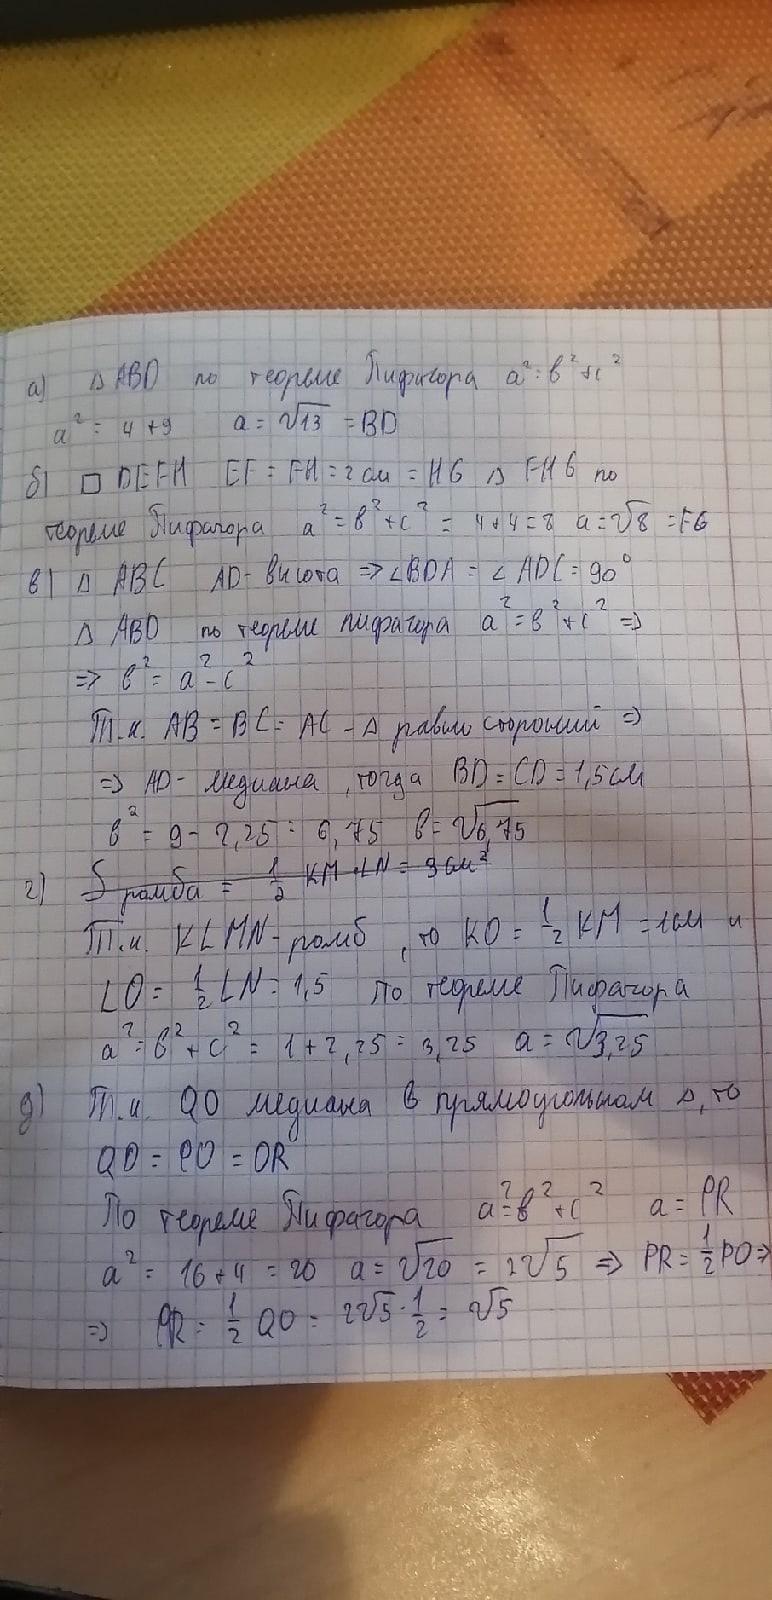 а) Δ ABD по теореме Пифагора a² = в² + c²
a² = 4 + 9 a = √13 = BD
б) □ DEFH EF = FH = 2 см = HG Δ FHG по
теореме Пифагора a² = в² + c² = 4 + 4 = 8 a = √8 = FG
в) Δ ABC AD - высота => ∠BDA = ∠ADC = 90°
Δ ABD по теореме пифагора a² = в² + c² =>
=> в² = a² - c²
Т.к. AB = BC = AC - Δ равносторонний =>
=> AD - медиана, тогда BD = CD = 1,5 см
в² = 9 - 2,25 = 6,75 в = √6,75
г) S ромба = 1/2 KM · LN = 3 см²
Т.к. KLMN - ромб, то KO = 1/2 KM = 1 см и
LO = 1/2 LN = 1,5 По теореме Пифагора
a² = в² + c² = 1 + 2,25 = 3,25 a = √3,25
д) Т.к. QO медиана в прямоугольном Δ, то
QO = PO = OR
По теореме Пифагора a² = в² + c² a = PR
a² = 16 + 4 = 20 a = √20 = 2√5 => PR = 1/2 PO =>
=> PR = 1/2 QO = 2√5 · 1/2 = √5